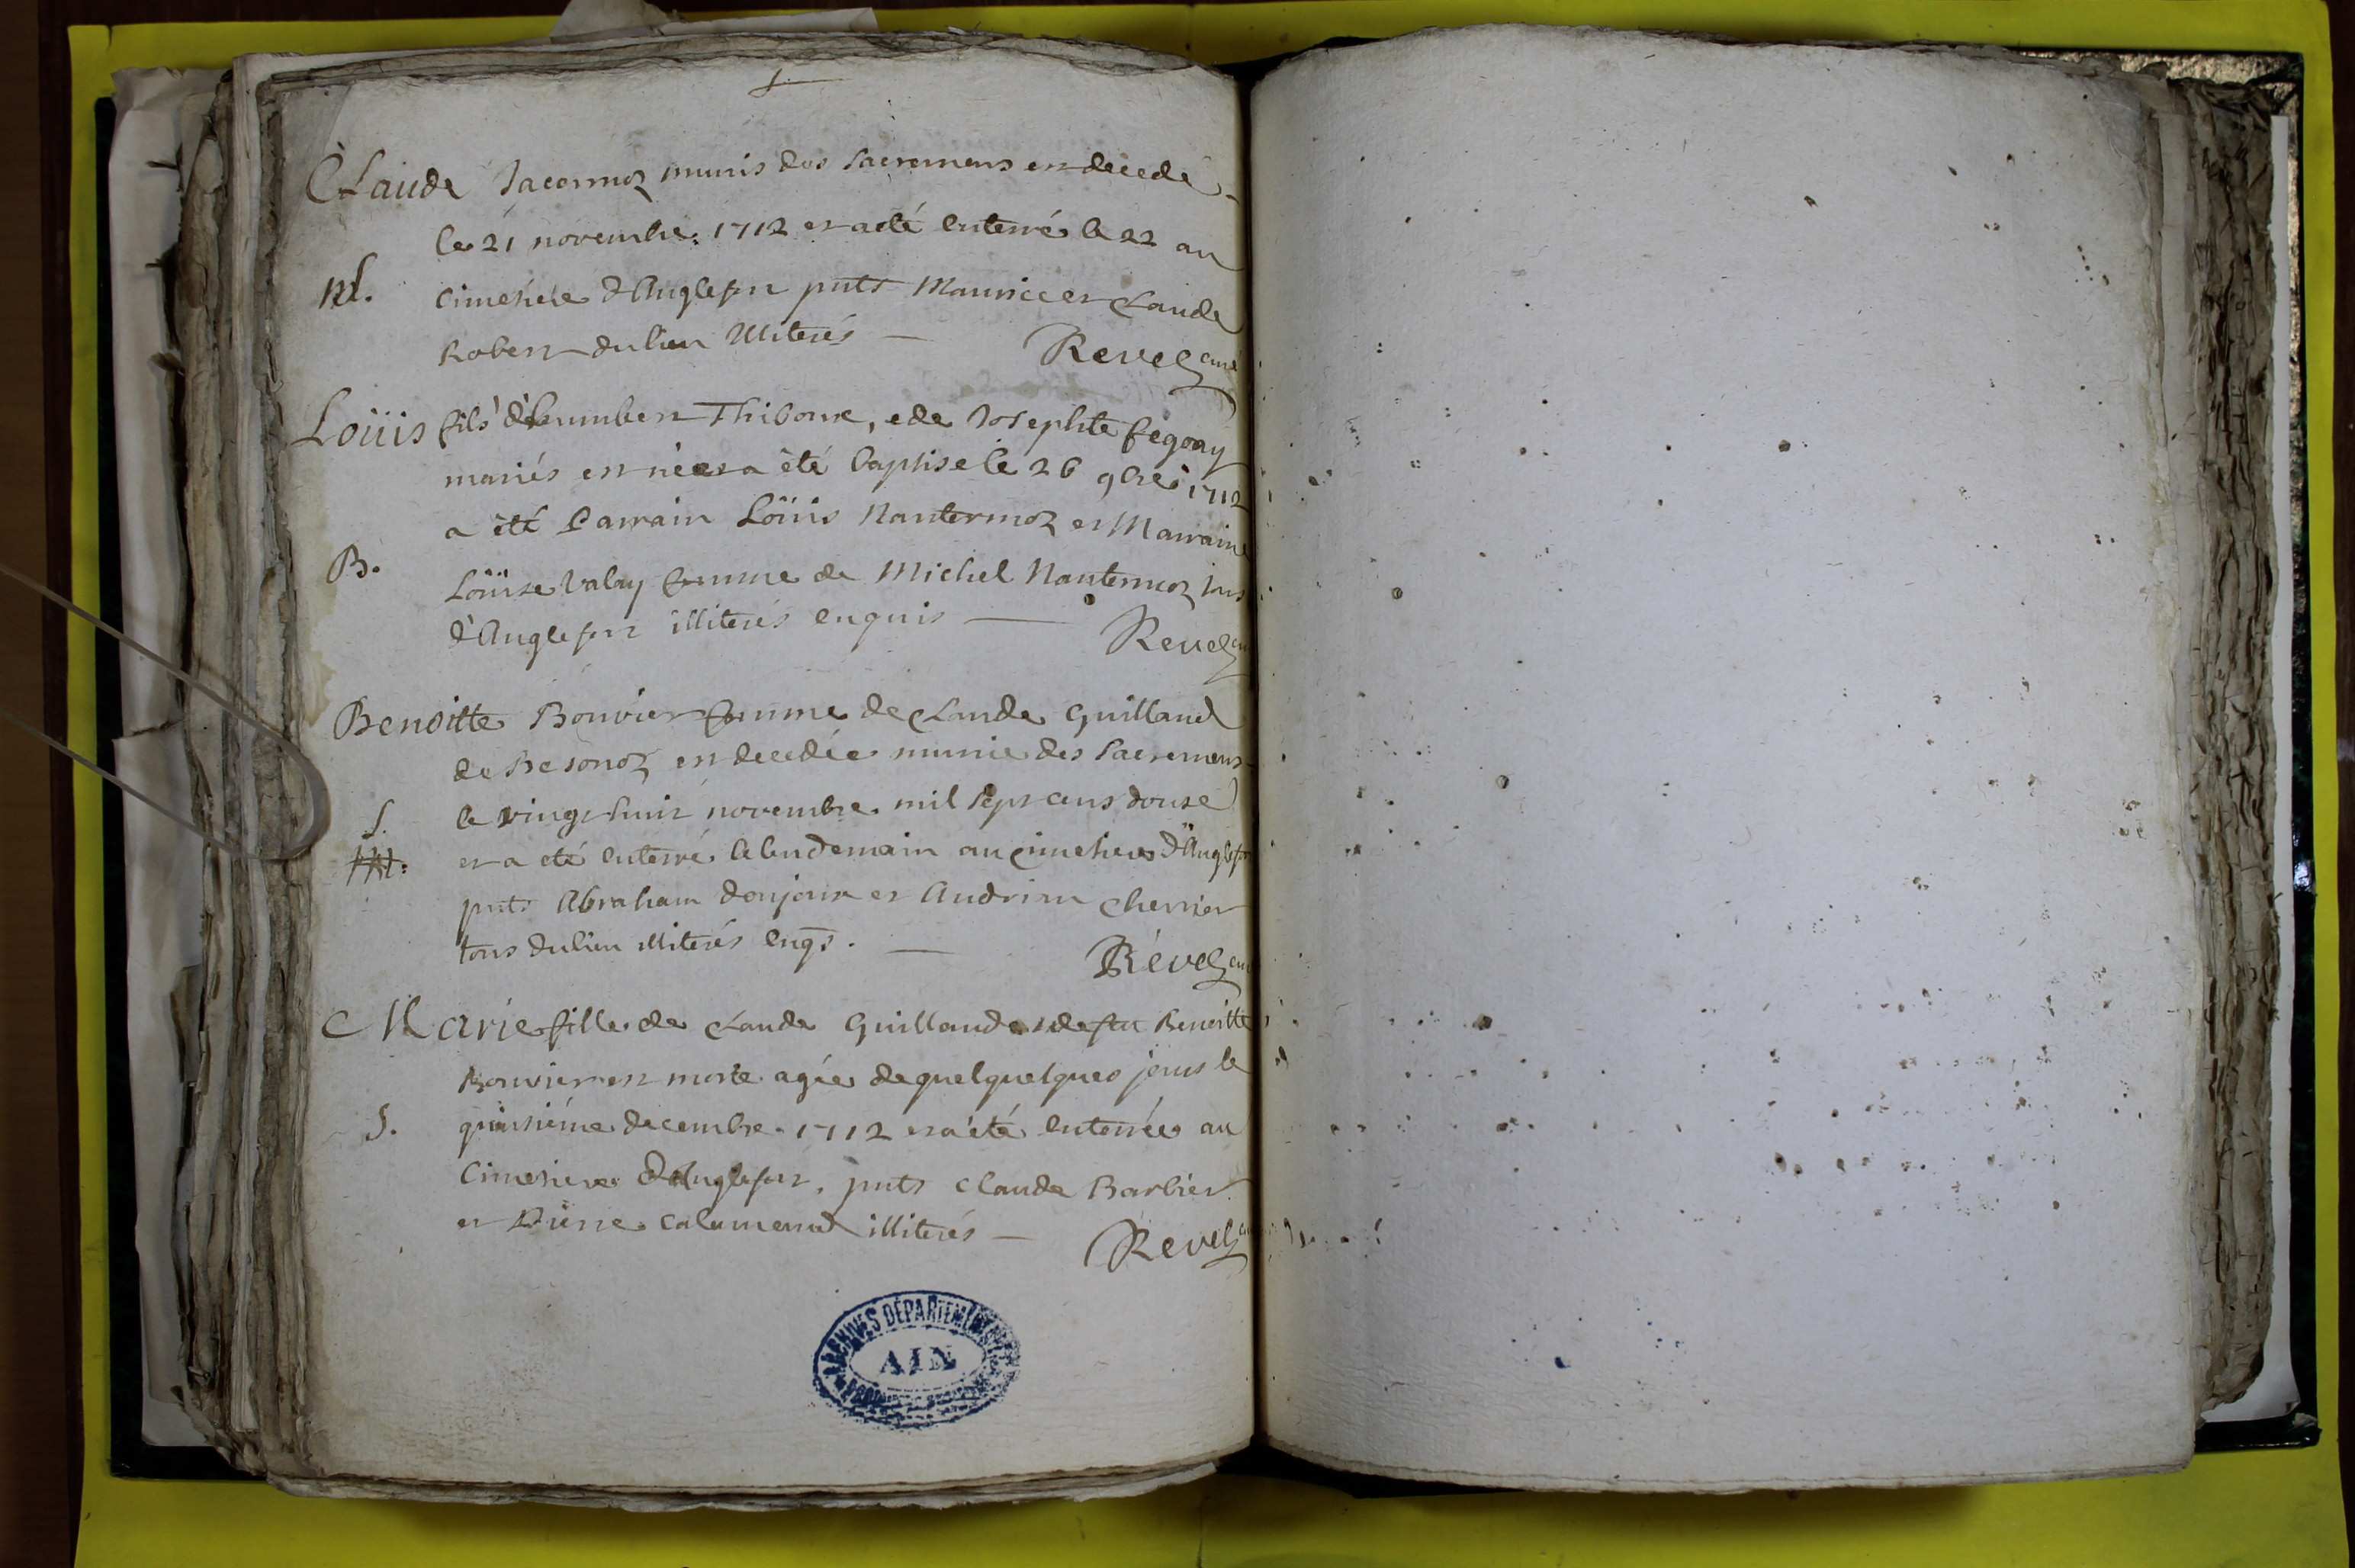 Claude Jacermoz munis des sacremens est decedé
le 21 novembre 1712 et a été enterré le 22 au
cimetiere d'Anglefort pnts Maurice et Claude
Robert du lieu illiterés
Revel curé
M.
Loüis fils d'humbert Thiboux, e de Josephte fegoay
mariés est né et a été baptisé le 26 9bre 1712
a été Parrain Loüis Nantermoz et Marraine
Loüise Valay femme de Michel Nantermoz tous
B.
d'Anglefort illiterés enquis
Revel cu
Benoitte Bouvier femme de Claude Guilland
de Besonoz est decedée munie des sacremens
le vingt huit novembre mil sept cens douse
S.
et a été enterré le lendemain au cimetiere d'Anglefort
pnts Abraham donjoux et Andrian Cherrier
tous du lieu illiterés enqs.
Revel cu
Marie fille de Claude Guilland et de feu Benoitte
Bouvier est morte agée de quelquelques jours le
quinsiéme decembre 1712 et a été enterrée au
S.
cimetiere d'Anglefort, pnts Claude Barbier
et Pierre Calumend illiterés
Revel cu
ARCHIVES DÉPARTEMENTALES
AIN